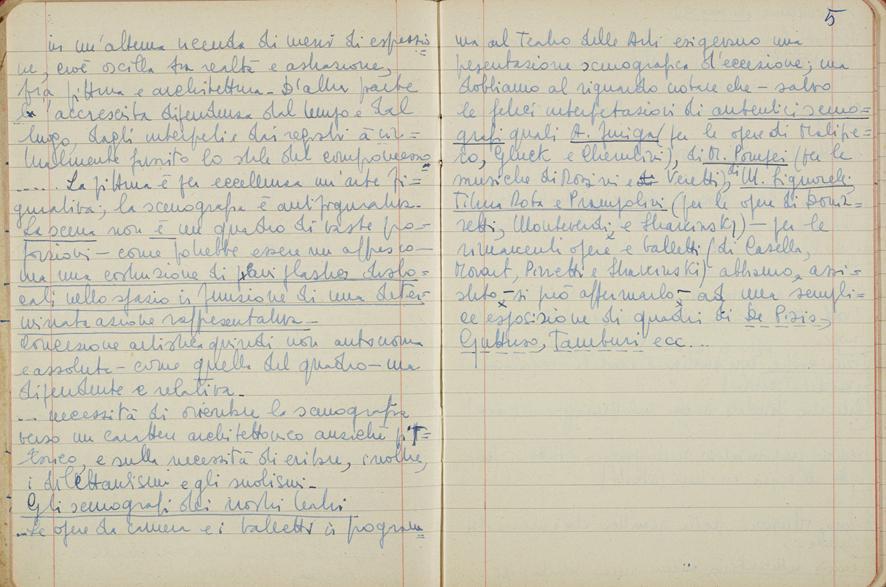 in un'alterna vicenda di mezzi di espressio=
ne, cioè oscilla tra realtà e astrazione,
fra pittura e architettura. D'altra parte
l'accresciuta dipendenza dal tempo e dal
luogo, dagli interpreti e dai registi à vir=
tualmente fornito lo stile del compromesso
.... La pittura è per eccellenza un'arte fi=
gurativa; la scenografia è antifigurativa.
La scena non è un quadro di vaste pro=
porzioni – come potrebbe essere un affresco –
ma una costruzione di piani plastici dislo=
cati nello spazio in funzione di una deter=
minata azione rappresentativa –
Concezione artistica quindi non autonoma
e assoluta – come quella del quadro – ma
dipendente e relativa.
... necessità di orientare la scenografia
verso un carattere architettonico anziché pit=
torico, e sulla necessità di evitare, inoltre,
i dilettantismi e gli snobismi.
Gli scenografi dei nostri teatri
... Le opere da camera e i balletti in program=
5
ma al Teatro delle Arti esigevano una
presentazione scenografica d'eccezione; ma
dobbiamo al riguardo notare che – salvo
le felici interpretazioni di autentici sceno=
grafi quali (per le opere di Malipie=
ro, Gluck e Cherubini), di M. Pompei (per le
musiche di Rosini e Veretti), di M. Signorelli,
Titina Rota e Prampolini (per le opere di Doniz=
zetti, Monteverdi e Strawinski) – per le
rimanenti opere e balletti (di Casella,
Mozart, Pizzetti e Strawinski) abbiamo assi=
stito – si può affermarlo – ad una sempli=
ce esposizione di quadri di De Pisis,
Guttuso, Tamburi ecc...